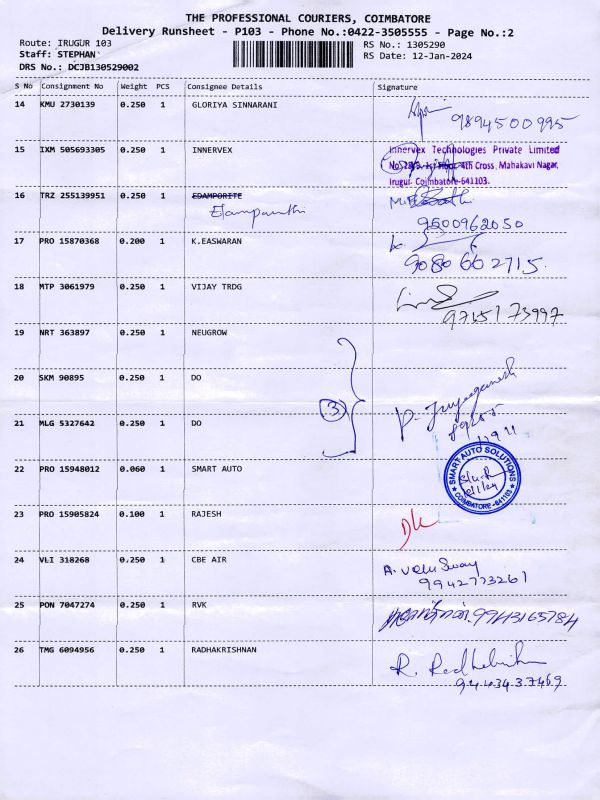 THE PROFESSIONAL COURIERS, COIMBATORE
Delivery Runsheet - P103 - Phone No.:0422-3505555 - Page No.:2
Route: IRUGUR 103
RS No.: 1305290
Staff: STEPHAN
RS Date: 12-Jan-2024
DRS No.: DCJB130529002
S No Consignment No Weight PCS Consignee Details Signature
14 KMU 2730139 0.250 1 GLORIYA SINNARANI
9894500995
15 IXM 505693305 0.250 1 INNERVEX
Innervex Technologies Private Limited
4th Cross, Mahakavi Nagar,
Irugur Coimbatore-641103.
16 TRZ 255139951 0.250 1 EDAMPORITE
9500962050
17 PRO 15870368 0.200 1 K.EASWARAN
9080662715.
18 MTP 3061979 0.250 1 VIJAY TRDG
9715173997
19 NRT 363897 0.250 1 NEUGROW
20 SKM 90895 0.250 1 DO
3
21 MLG 5327642 0.250 1 DO
22 PRO 15948012 0.060 1 SMART AUTO
SMART AUTO SOLUTIONS
COIMBATORE - 641103
23 PRO 15905824 0.100 1 RAJESH
24 VLI 318268 0.250 1 CBE AIR
A. Velu Sway
9942773261
25 PON 7047274 0.250 1 RVK
9943165784
26 TMG 6094956 0.250 1 RADHAKRISHNAN
R. Radhakrishn
9443437469